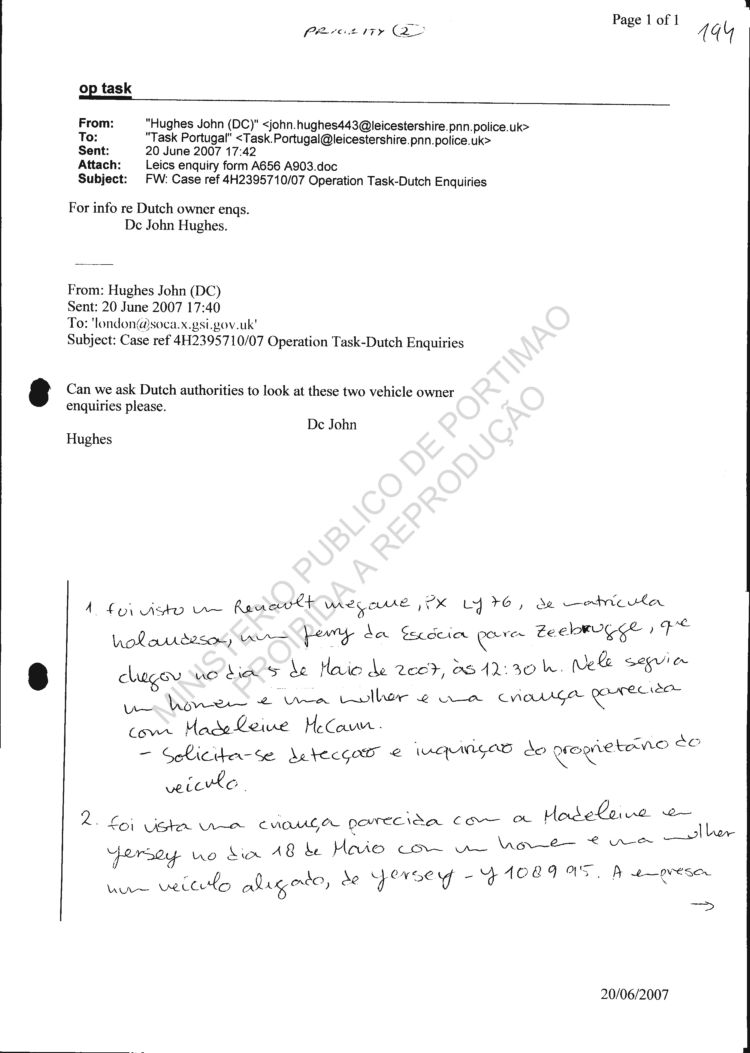 PRIORITY (2)
Page 1 of 1
194
op task
From: "Hughes John (DC)" <john.hughes443@leicestershire.pnn.police.uk>
To: "Task Portugal" <Task.Portugal@leicestershire.pnn.police.uk>
Sent: 20 June 2007 17:42
Attach: Leics enquiry form A656 A903.doc
Subject: FW: Case ref 4H2395710/07 Operation Task-Dutch Enquiries
For info re Dutch owner enqs.
Dc John Hughes.
From: Hughes John (DC)
Sent: 20 June 2007 17:40
To: 'london@soca.x.gsi.gov.uk'
Subject: Case ref 4H2395710/07 Operation Task-Dutch Enquiries
Can we ask Dutch authorities to look at these two vehicle owner
enquiries please.
Dc John
Hughes
MINISTERIO PUBLICO DE PORTIMAO
PROIBIDA A REPRODUÇÃO
1. foi visto um Renault megane, PX LY 76, de matrícula
holandesa, num ferry da Escócia para Zeebrugge, que
chegou no dia 5 de Maio de 2007, às 12:30 h. Nele seguia
um homem e uma mulher e uma criança parecida
com Madeleine McCann.
- Solicita-se detecção e inquirição do proprietário do
veículo.
2. foi vista uma criança parecida com a Madeleine em
Yersey no dia 18 de Maio com um homem e uma mulher
num veículo alugado, de Yersey - Y108995. A empresa
→
20/06/2007